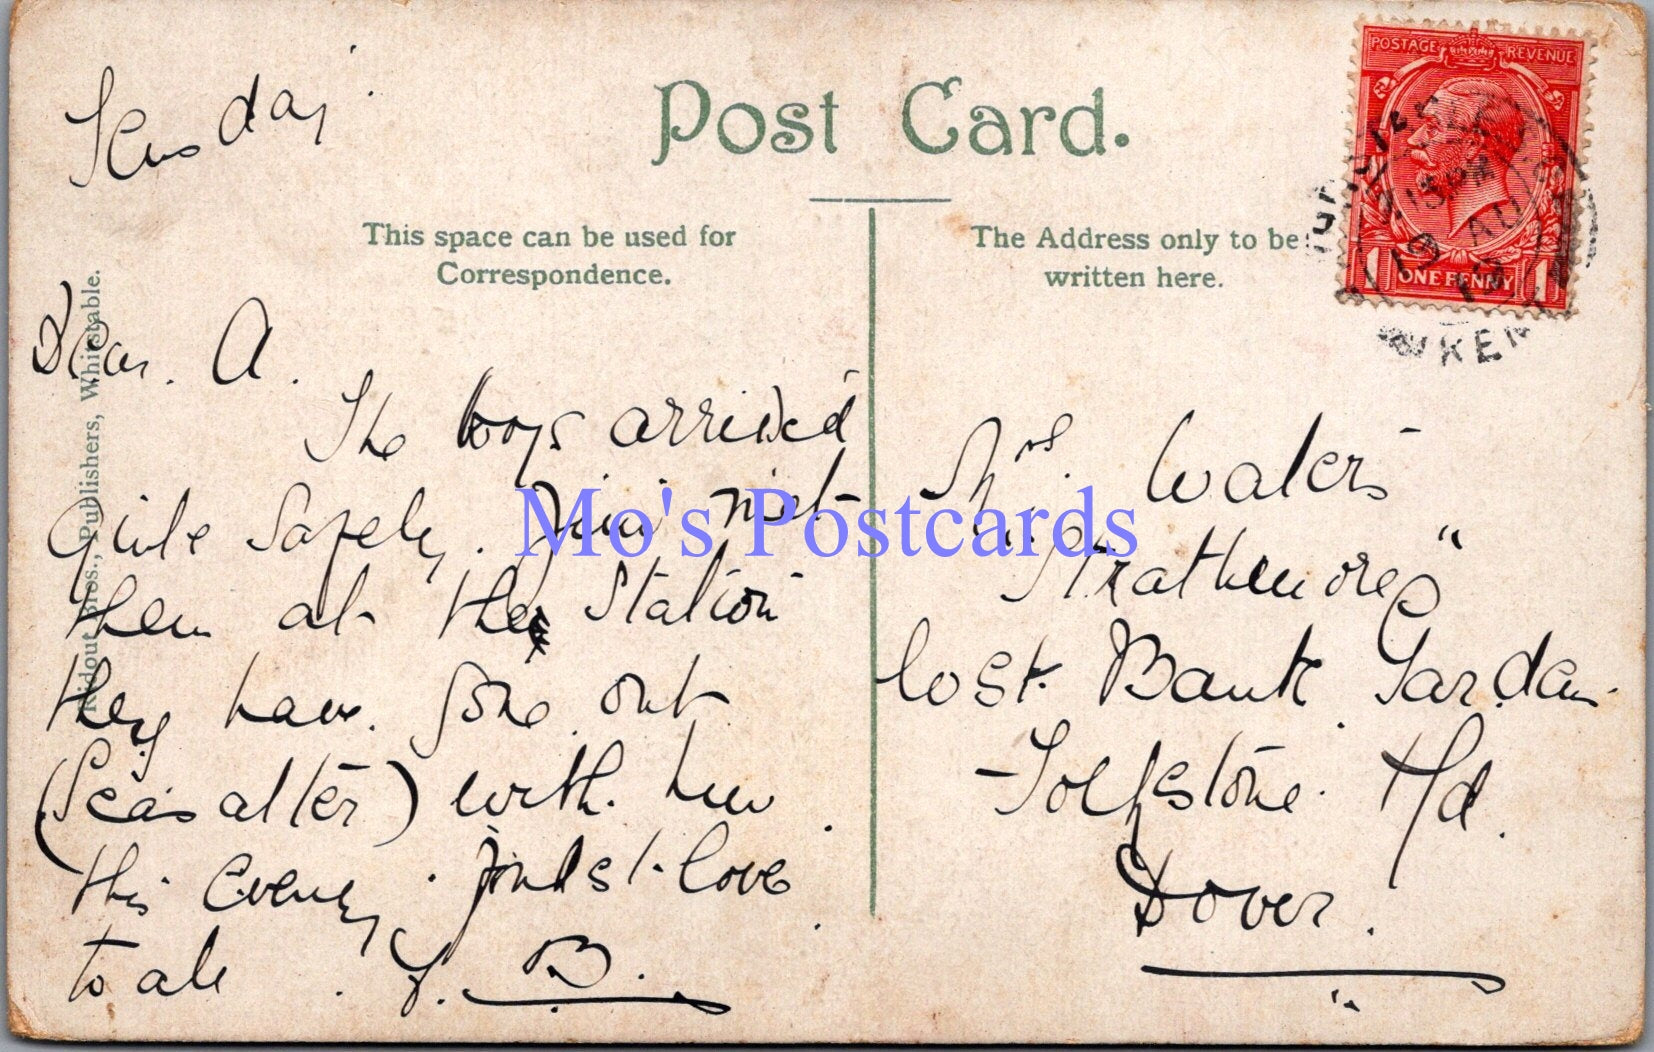 Post Card.
This space can be used for
Correspondence.
The Address only to be
written here.
Ridout Bros., Publishers, Whitstable.
POSTAGE REVENUE
ONE PENNY
7.15 PM
19 AU
KEN
day
Dear. A.
The boys arrived
quite Safely. Jim met
them at the Station
they have gone out
(Seasalter) with him
this Evening. fondest love
to all. B.
Mrs. Waters
"Strathmore"
Bank Garden
Folkstone Rd.
Dover.
Mo's Postcards